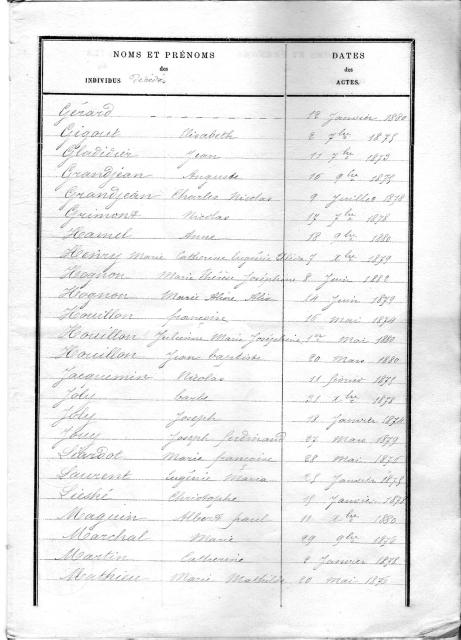 NOMS ET PRÉNOMS DATES
des des
INDIVIDUS Décédés ACTES.
Gérard 12 Janvier 1880
Gigout Elisabeth 2 7bre 1875
Gladidier Jean 11 7bre 1873
Grandjean Auguste 16 9bre 1875
Grandjean Charles Nicolas 9 Juillet 1878
Grimont Nicolas 17 7bre 1878
Hamel Anne 18 9bre 1880
Henry Marie Catherine Eugénie 7 Xbre 1879
Hognon Marie Thérèse Joséphine 8 Juin 1882
Hognon Marie Aline Alix 14 Juin 1879
Houillon françoise 16 Mai 1874
Houillon Julienne Marie Joséphine 1er Mai 1880
Houillon Jean baptiste 20 Mars 1880
Jacquemin Nicolas 11 février 1875
Joly barbe 21 Xbre 1878
Joly Joseph 18 Janvier 1874
Jouy Joseph ferdinand 27 Mars 1879
Lardot Marie françoise 28 Mai 1875
Laurent Eugénie Maria 25 Janvier 1875
Christophe 15 Janvier 1878
Maguin Albert paul 11 Xbre 1880
Marchal Marie 29 9bre 1876
Martin Catherine 2 Janvier 1878
Mathieu Marie Mathilde 20 Mai 1876